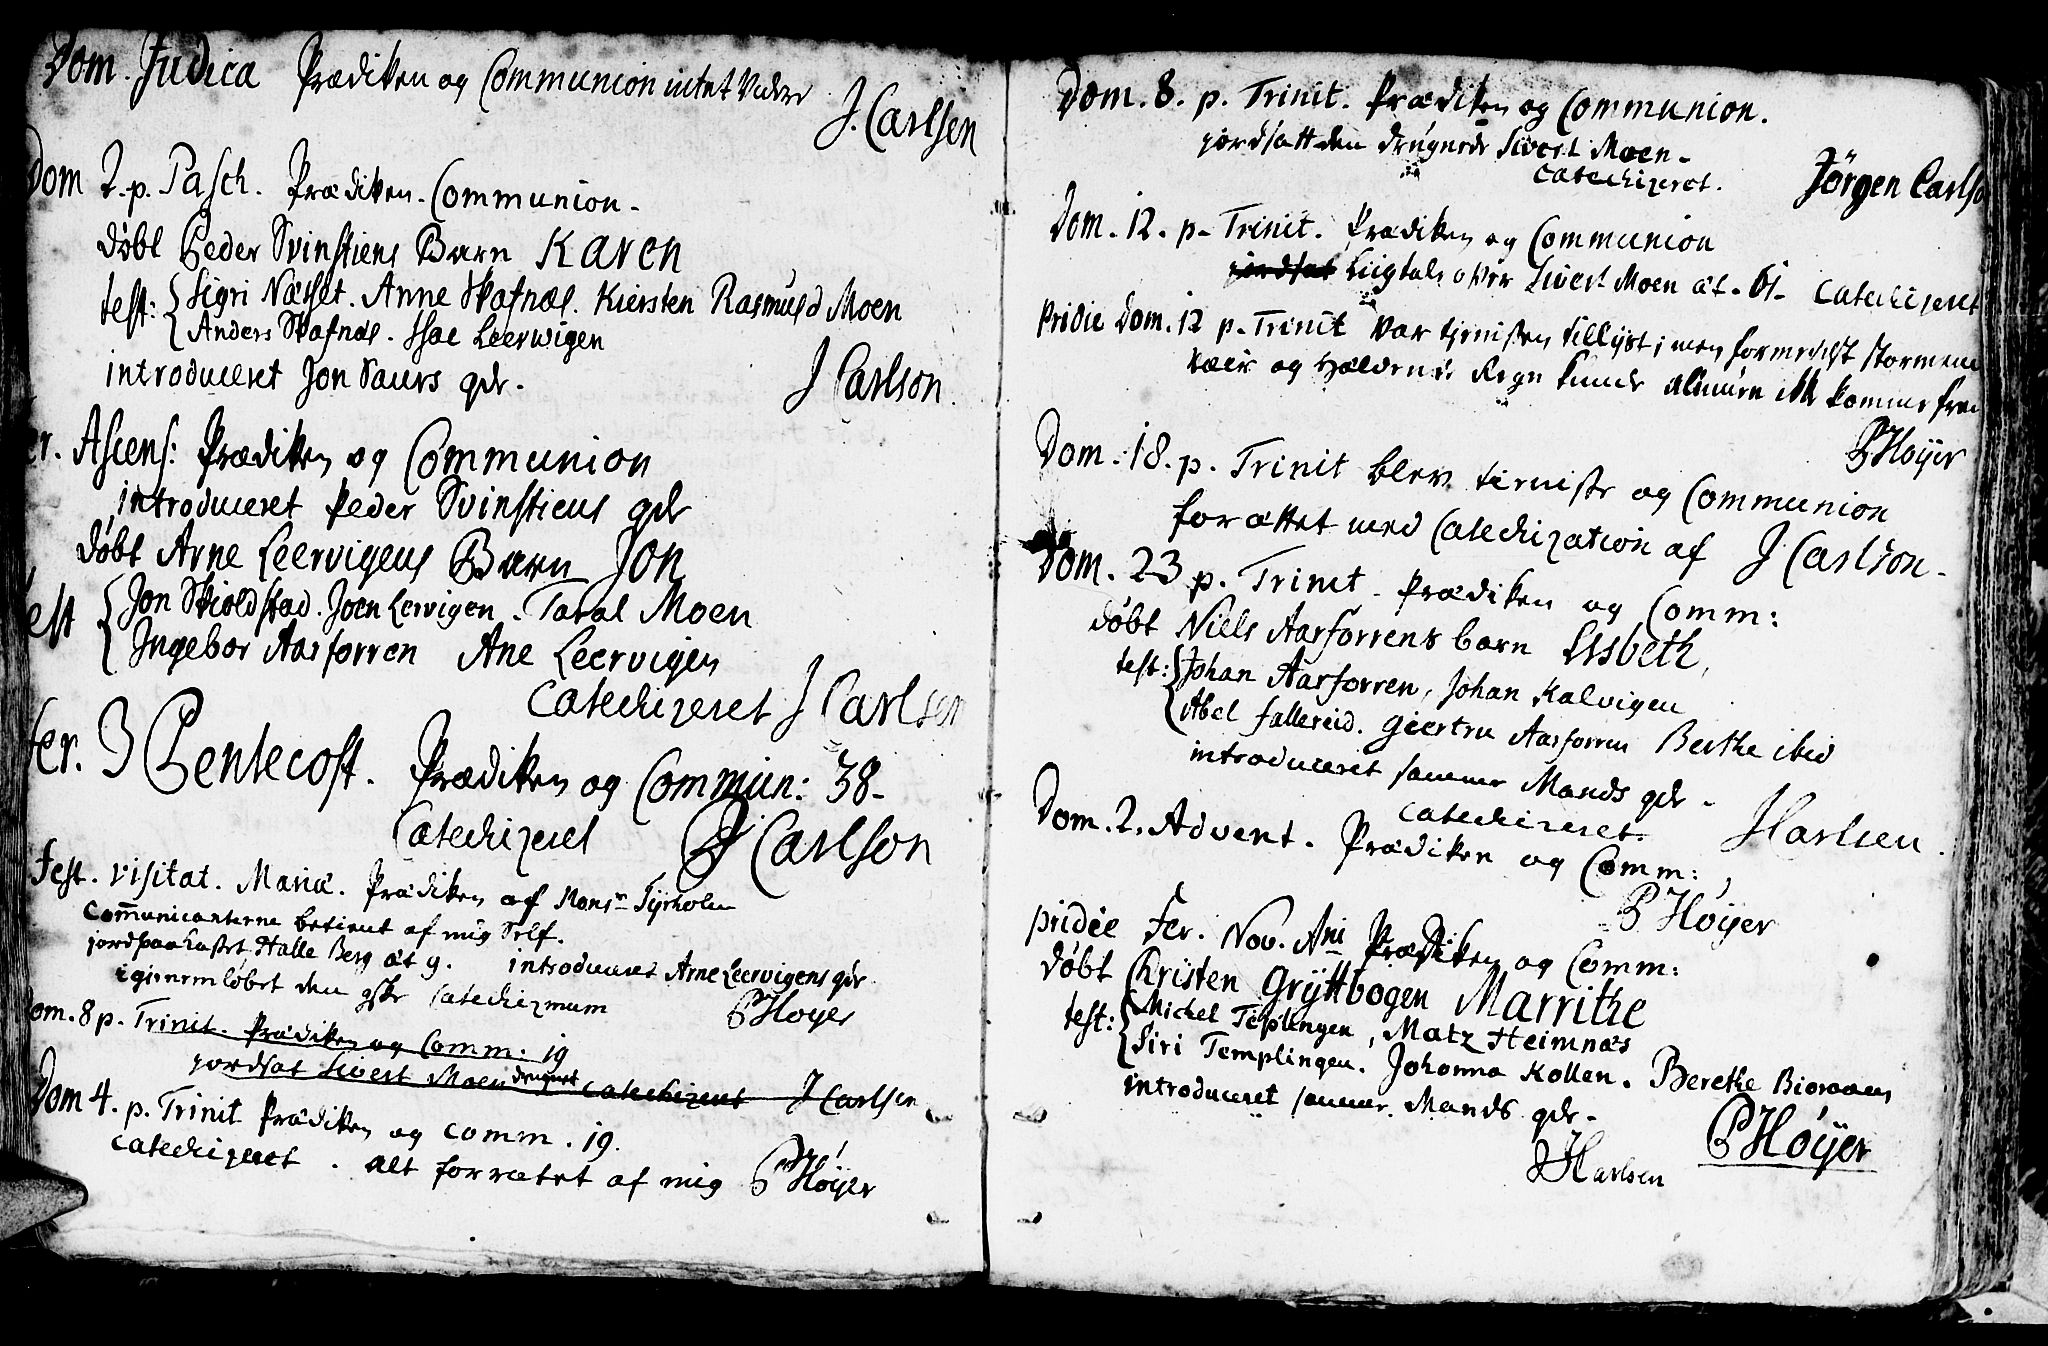 Dom. Judica Prædiken og Communion intet videre
J. Carlsen
Dom 2. p. Pasch. Prædiken. Communion.
døbt Peder Svinstiens Barn Karen
test: Sigri Næsset. Anne Skafnæs. Kiersten Rasmusd Moen
Anders Skafnæs. Isac Leervigen
introduceret Jon Saurs qdr.
J Carlson.
er. Ascens: Prædiken og Communion
introduceret Peder Svinstiens qdr
døbt Arne Leervigens Barn Jon
test Jon Skioldstad. Joen Lervigen. Taral Moen
Ingebor Aasforren Ane Leervigen
Catechizeret J Carlsen
fer. 3 Pentecost. Prædiken og Commun: 38.
Catechizeret J Carlson
Fest. visitat. Mariæ. Prædiken af Monsr Tyrholm
Communicanterne betient af mig Self.
jordpaakastet Halle Berg æt 9. introduceret Arne Leervigens qdr.
igiennemløbet den gste Catechizmum
PHøyer
Dom. 8 p. Trinit. Prædiken og Comm: 19
jordsat Sivert Moen drugnet catechizeret J Carlsen
Dom 4. p. Trinit Prædiken og Comm. 19.
catechizeret. alt forrætet af mig PHøyer
Dom. 8. p. Trinit. Prædiken og Communion.
jordsatt den drugnede Sivert Moen.
catechizeret. Jörgen Carlso
Dom. 12. p. Trinit. Prædiken og Communion
jordsat Liigtale over Sivert Moen æt. 61. Catechizeret
Pridie Dom. 12 p. Trinit var tienisten tillyst; men formedelst stormende
væir og Hældende Regn kunde almuen ikke komme frem
PHøyer
Dom. 18. p. Trinit blev tieniste og Communion
forættet med Catechization af J Carlson.
Dom. 23 p. Trinit. Prædiken og Comm:
døbt Niels Aarforrens barn Lisbeth,
test: Johan Aarforren, Johan Kalvigen
Abel fallereid. Giertru Aarforren Berthe ibid
introduceret samme Mands qdr.
catechizeret. J Carlsen.
Dom. 2. Advent. Prædiken og Comm:
PHøyer
pridie Fer. Nov. Ani Prædiken og Comm:
døbt Christen Gryttbogen Marrithe
test: Michel Teplingen, Matz Heimnæs
Siri Templingen. Johanna Kollen. Berethe Bioraaen
introduceret samme. Mands qdr.
PHøyer
J Carlsen